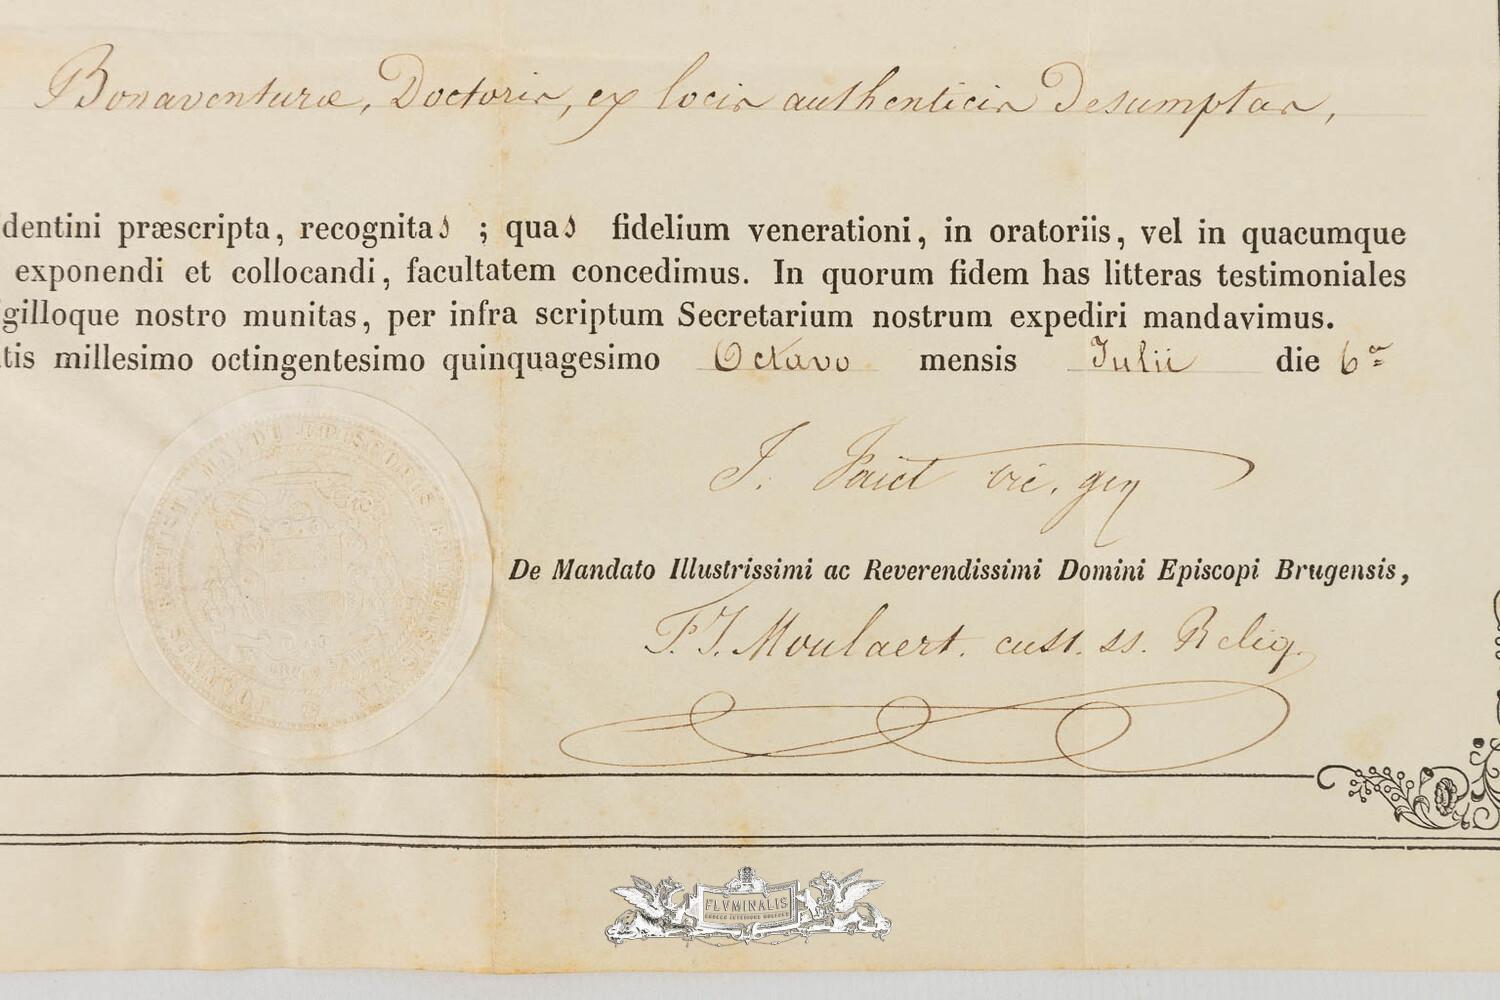 Bonaventuræ, Doctoris, ex locis authenticis desumptas,
dentini præscripta, recognitas ; quas fidelium venerationi, in oratoriis, vel in quacumque
exponendi et collocandi, facultatem concedimus. In quorum fidem has litteras testimoniales
gilloque nostro munitas, per infra scriptum Secretarium nostrum expediri mandavimus.
tis millesimo octingentesimo quinquagesimo Octavo mensis Julii die 6ª
J. Faict vic. gen
De Mandato Illustrissimi ac Reverendissimi Domini Episcopi Brugensis,
F. J. Moulaert. cust. ss. Reliq.
FLVMINALIS